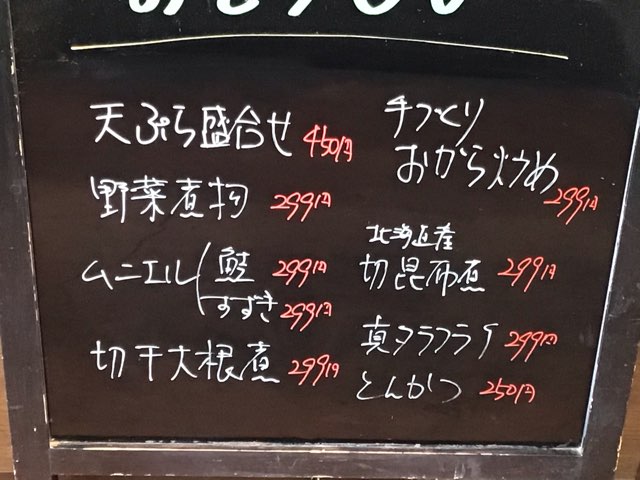 天ぷら盛合せ 450円
野菜煮物 299円
ムニエル 鮭 299円
すずき 299円
切干大根煮 299円
手づくり
おから炒め 299円
北海道産
切昆布煮 299円
真タラフライ 299円
とんかつ 250円